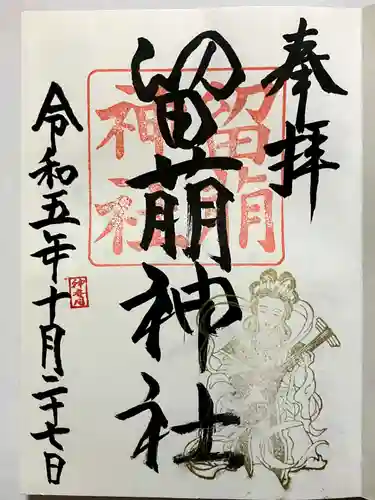 奉拝
留萌神社
留萌
神社
令和五年十月二十七日